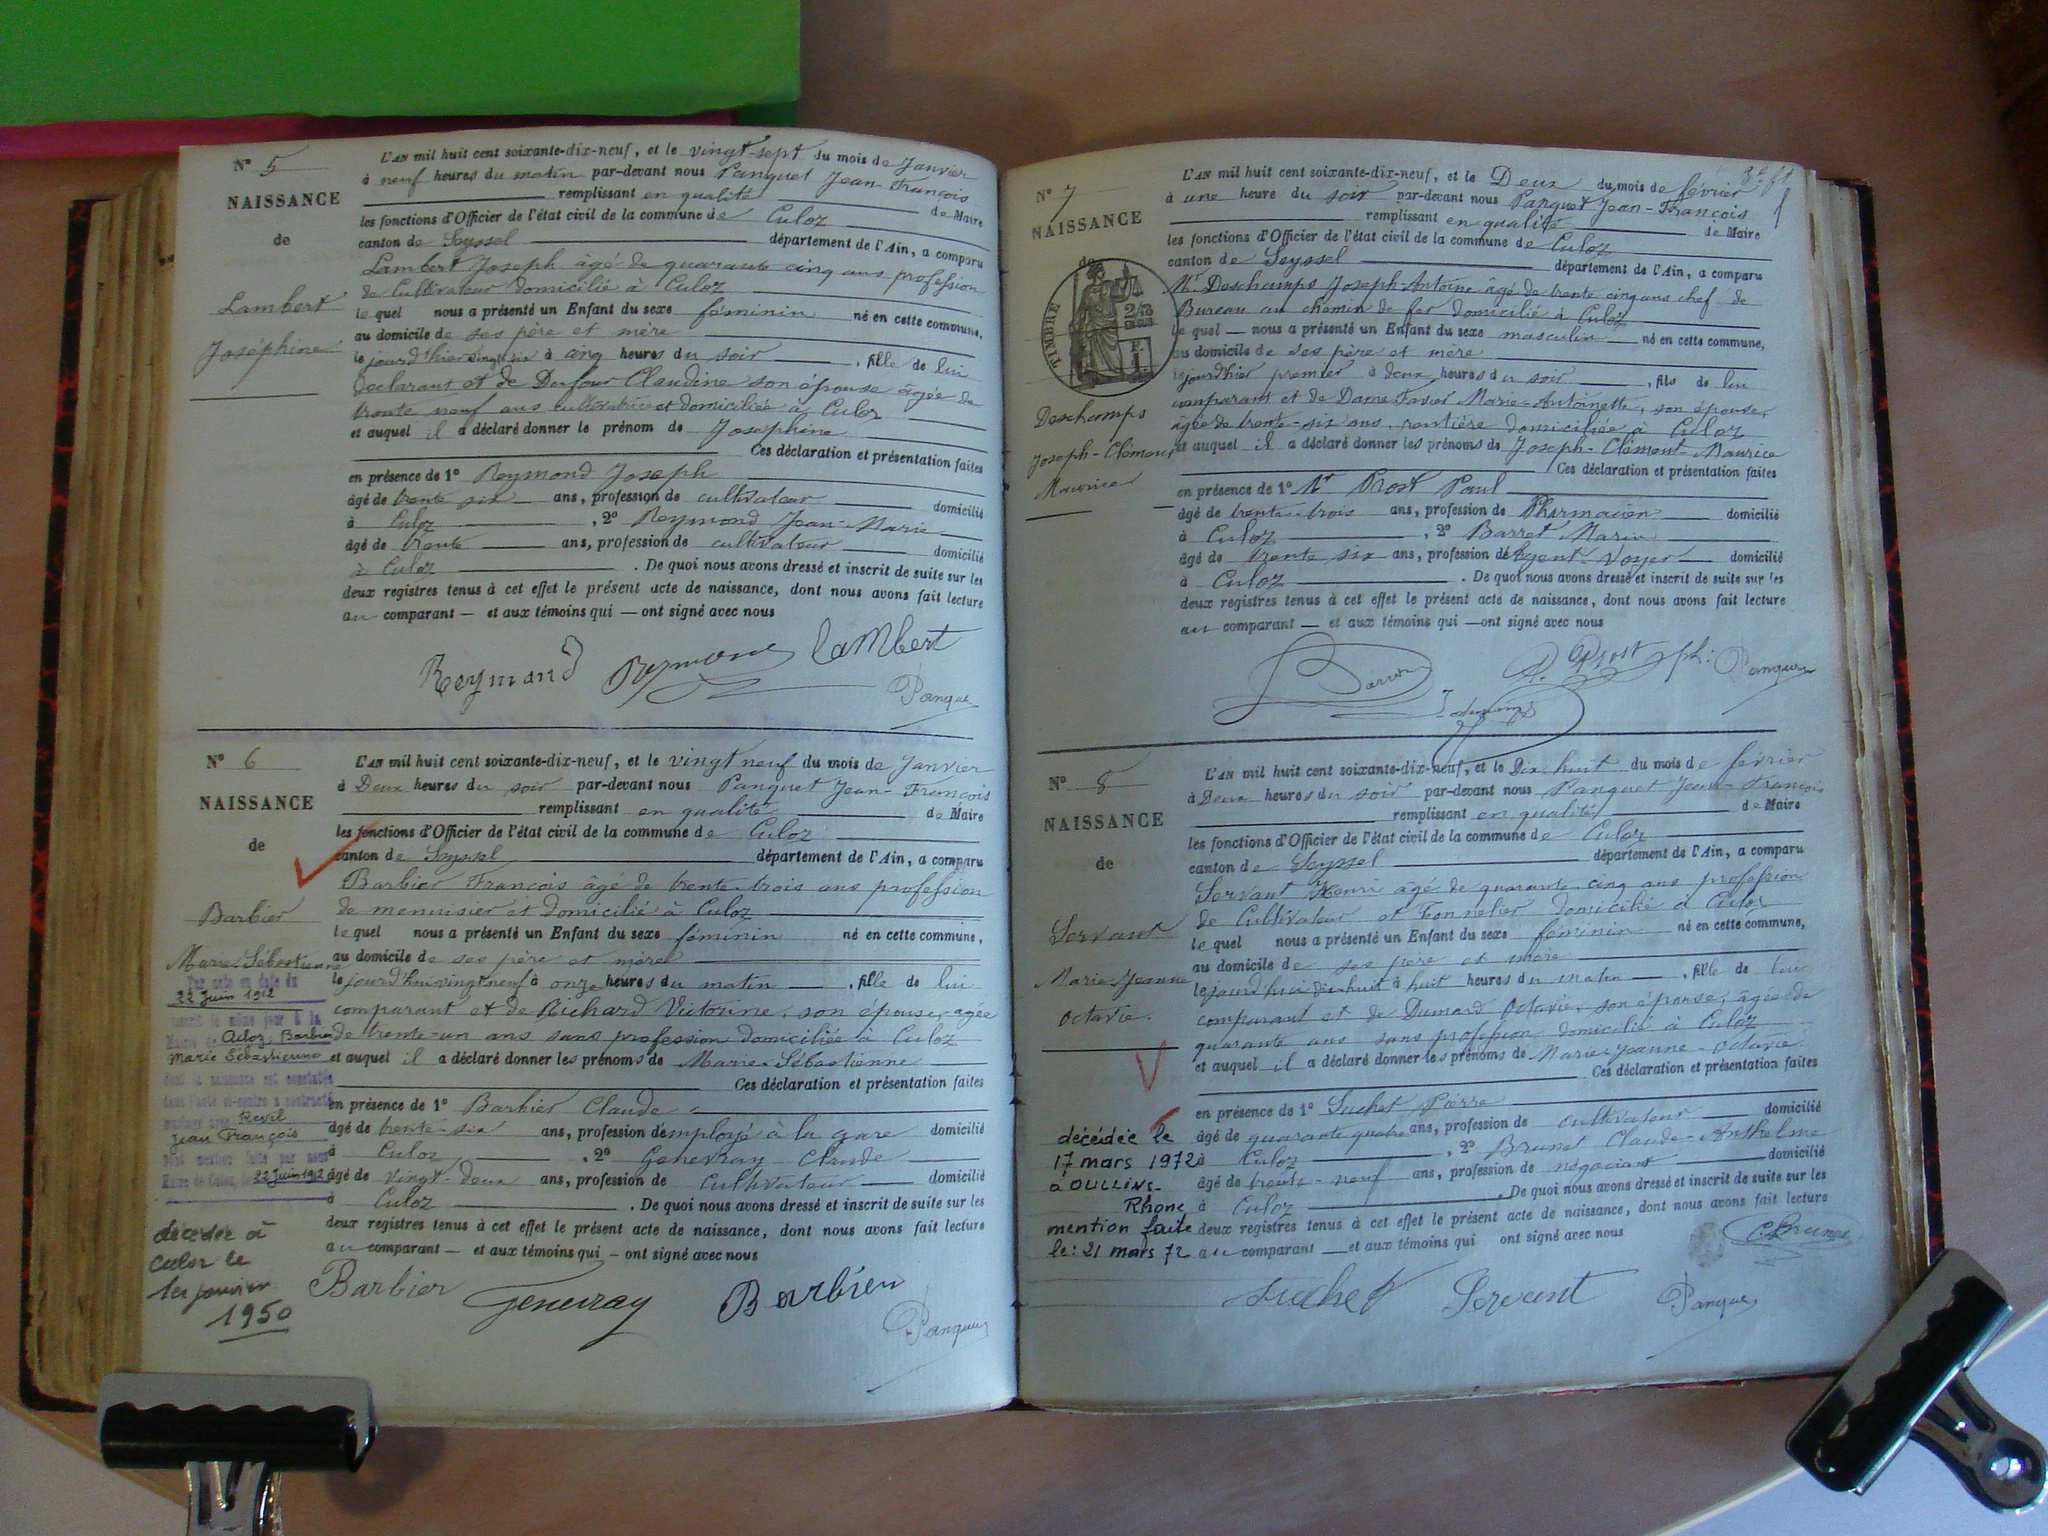 N° 5
NAISSANCE
de
Lambert
Joséphine
L'AN mil huit cent soixante-dix-neuf, et le vingt-sept du mois de Janvier
à neuf heures du matin par-devant nous Panquet Jean-François
remplissant en qualité de Maire
les fonctions d'Officier de l'état civil de la commune de Culoz
canton de Seyssel département de l'Ain, a comparu
Lambert Joseph âgé de quarante cinq ans profession
de Cultivateur domicilié à Culoz
le quel nous a présenté un Enfant du sexe féminin né en cette commune,
au domicile de ses père et mère
le jourd'hier vingt six à cinq heures du soir, fille de lui
déclarant et de Dufour Claudine son épouse âgée de
trente neuf ans cultivatrice et domiciliée à Culoz
et auquel il a déclaré donner le prénom de Joséphine
Ces déclaration et présentation faites
en présence de 1° Reymond Joseph
âgé de trente six ans, profession de cultivateur domicilié
à Culoz, 2° Reymond Jean-Marie
âgé de trente ans, profession de cultivateur domicilié
à Culoz. De quoi nous avons dressé et inscrit de suite sur les
deux registres tenus à cet effet le présent acte de naissance, dont nous avons fait lecture
au comparant — et aux témoins qui — ont signé avec nous
Reymond Reymond Lambert
Panquet
N° 6
NAISSANCE
de
Barbier
Marie-Sébastienne
Par acte en date du
22 Juin 1912
Culoz, Barbier
Marie Sébastienne
dont la naissance est constatée
dans l'acte ci-contre a contracté
mariage avec Revil
Jean François
Dont mention faite par nous
Maire de Culoz, le 22 Juin 1912
décédée à
Culoz le
1er janvier
1950
L'AN mil huit cent soixante-dix-neuf, et le vingt neuf du mois de Janvier
à Deux heures du soir par-devant nous Panquet Jean-François
remplissant en qualité de Maire
les fonctions d'Officier de l'état civil de la commune de Culoz
canton de Seyssel département de l'Ain, a comparu
Barbier François âgé de trente-trois ans profession
de menuisier et domicilié à Culoz
le quel nous a présenté un Enfant du sexe féminin né en cette commune,
au domicile de ses père et mère
le jourd'hui vingt neuf à onze heures du matin, fille de lui
comparant et de Richard Victorine, son épouse, agée
de trente-un ans sans profession domiciliée à Culoz
et auquel il a déclaré donner les prénoms de Marie-Sébastienne
Ces déclaration et présentation faites
en présence de 1° Barbier Claude
âgé de trente-six ans, profession d'employé à la gare domicilié
à Culoz, 2° Genevray Claude
âgé de vingt-deux ans, profession de cultivateur domicilié
à Culoz. De quoi nous avons dressé et inscrit de suite sur les
deux registres tenus à cet effet le présent acte de naissance, dont nous avons fait lecture
au comparant — et aux témoins qui — ont signé avec nous
Barbier Genevray Barbier
Panquet
N° 7
NAISSANCE
de
TIMBRE
2/3
Deschamps
Joseph-Clément
Maurice
L'AN mil huit cent soixante-dix-neuf, et le Deux du mois de février
à une heure du soir par-devant nous Panquet Jean-François
remplissant en qualité de Maire
les fonctions d'Officier de l'état civil de la commune de Culoz
canton de Seyssel département de l'Ain, a comparu
Mr Deschamps Joseph-Antoine âgé de trente cinq ans chef de
Bureau au chemin de fer domicilié à Culoz
le quel — nous a présenté un Enfant du sexe masculin né en cette commune,
au domicile de ses père et mère
le jourd'hier premier à deux heures du soir, fils de lui
comparant et de Dame Favier Marie-Antoinette, son épouse,
âgée de trente-six ans, rentière domiciliée à Culoz
et auquel il a déclaré donner les prénoms de Joseph-Clément-Maurice
Ces déclaration et présentation faites
en présence de 1° Mr Prost Paul
âgé de trente-trois ans, profession de Pharmacien domicilié
à Culoz, 2° Barret Marin
âgé de trente six ans, profession d'agent-Voyer domicilié
à Culoz. De quoi nous avons dressé et inscrit de suite sur les
deux registres tenus à cet effet le présent acte de naissance, dont nous avons fait lecture
au comparant — et aux témoins qui — ont signé avec nous
P. Prost ph: Panquet
N° 8
NAISSANCE
de
Servant
Marie-Jeanne
Octavie.
décédée le
17 mars 1972
à OULLINS
Rhone
mention faite
le: 21 mars 72
L'AN mil huit cent soixante-dix-neuf, et le Dix huit du mois de février
à Deux heures du soir par-devant nous Panquet Jean-François
remplissant en qualité de Maire
les fonctions d'Officier de l'état civil de la commune de Culoz
canton de Seyssel département de l'Ain, a comparu
Servant Henri âgé de quarante-cinq ans profession
de Cultivateur et Tonnelier domicilié à Culoz
le quel nous a présenté un Enfant du sexe féminin né en cette commune,
au domicile de ses père et mère
le jourd'hui dix huit à huit heures du matin, fille de lui
comparant et de Dumard Octavie, son épouse, âgée de
quarante ans sans profession domicilié à Culoz
et auquel il a déclaré donner les prénoms de Marie-Jeanne-Octavie
Ces déclaration et présentation faites
en présence de 1° Suchet Pierre
âgé de quarante quatre ans, profession de cultivateur domicilié
à Culoz, 2° Brunet Claude-Anthelme
âgé de trente-neuf ans, profession de négociant domicilié
à Culoz. De quoi nous avons dressé et inscrit de suite sur les
deux registres tenus à cet effet le présent acte de naissance, dont nous avons fait lecture
au comparant — et aux témoins qui ont signé avec nous
C. Brunet
Suchet Servant Panquet